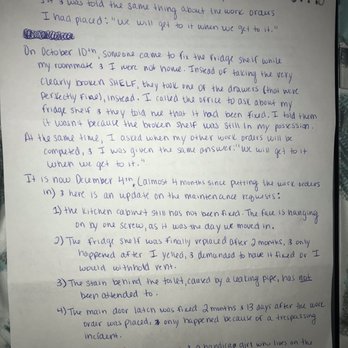 I was told the same thing about the work orders
I had placed: "we will get to it when we get to it."
On October 10th, someone came to fix the fridge shelf while
my roommate & I were not home. Instead of taking the very
clearly broken SHELF, they took one of the drawers (that were
perfectly fine), instead. I called the office to ask about my
fridge shelf & they told me that it had been fixed. I told them
it wasn't because the broken shelf was still in my possession.
At the same time, I asked when my other work orders will be
completed, & I was given the same answer: "We will get to it
when we get to it."
It is now December 4th, (almost 4 months since putting the work orders
in) & here is an update on the maintenance requests:
1) the kitchen cabinet still has not been fixed. The face is hanging
on by one screw, as it was the day we moved in.
2) The fridge shelf was finally replaced after 2 months, & only
happened after I yelled, & demanded to have it fixed or I
would withhold rent.
3) The stain behind the toilet, caused by a leaking pipe, has not
been attended to.
4) The main door latch was fixed 2 months & 13 days after the work
order was placed, & only happened because of a trespassing
incident.
& a handicap girl who lives on the